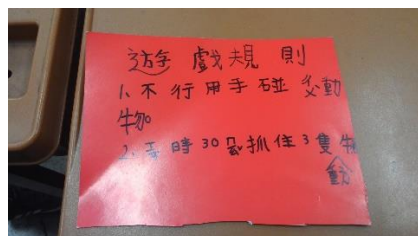 遊戲規則
1、不行用手碰動
物
2、時30抓住3隻
動